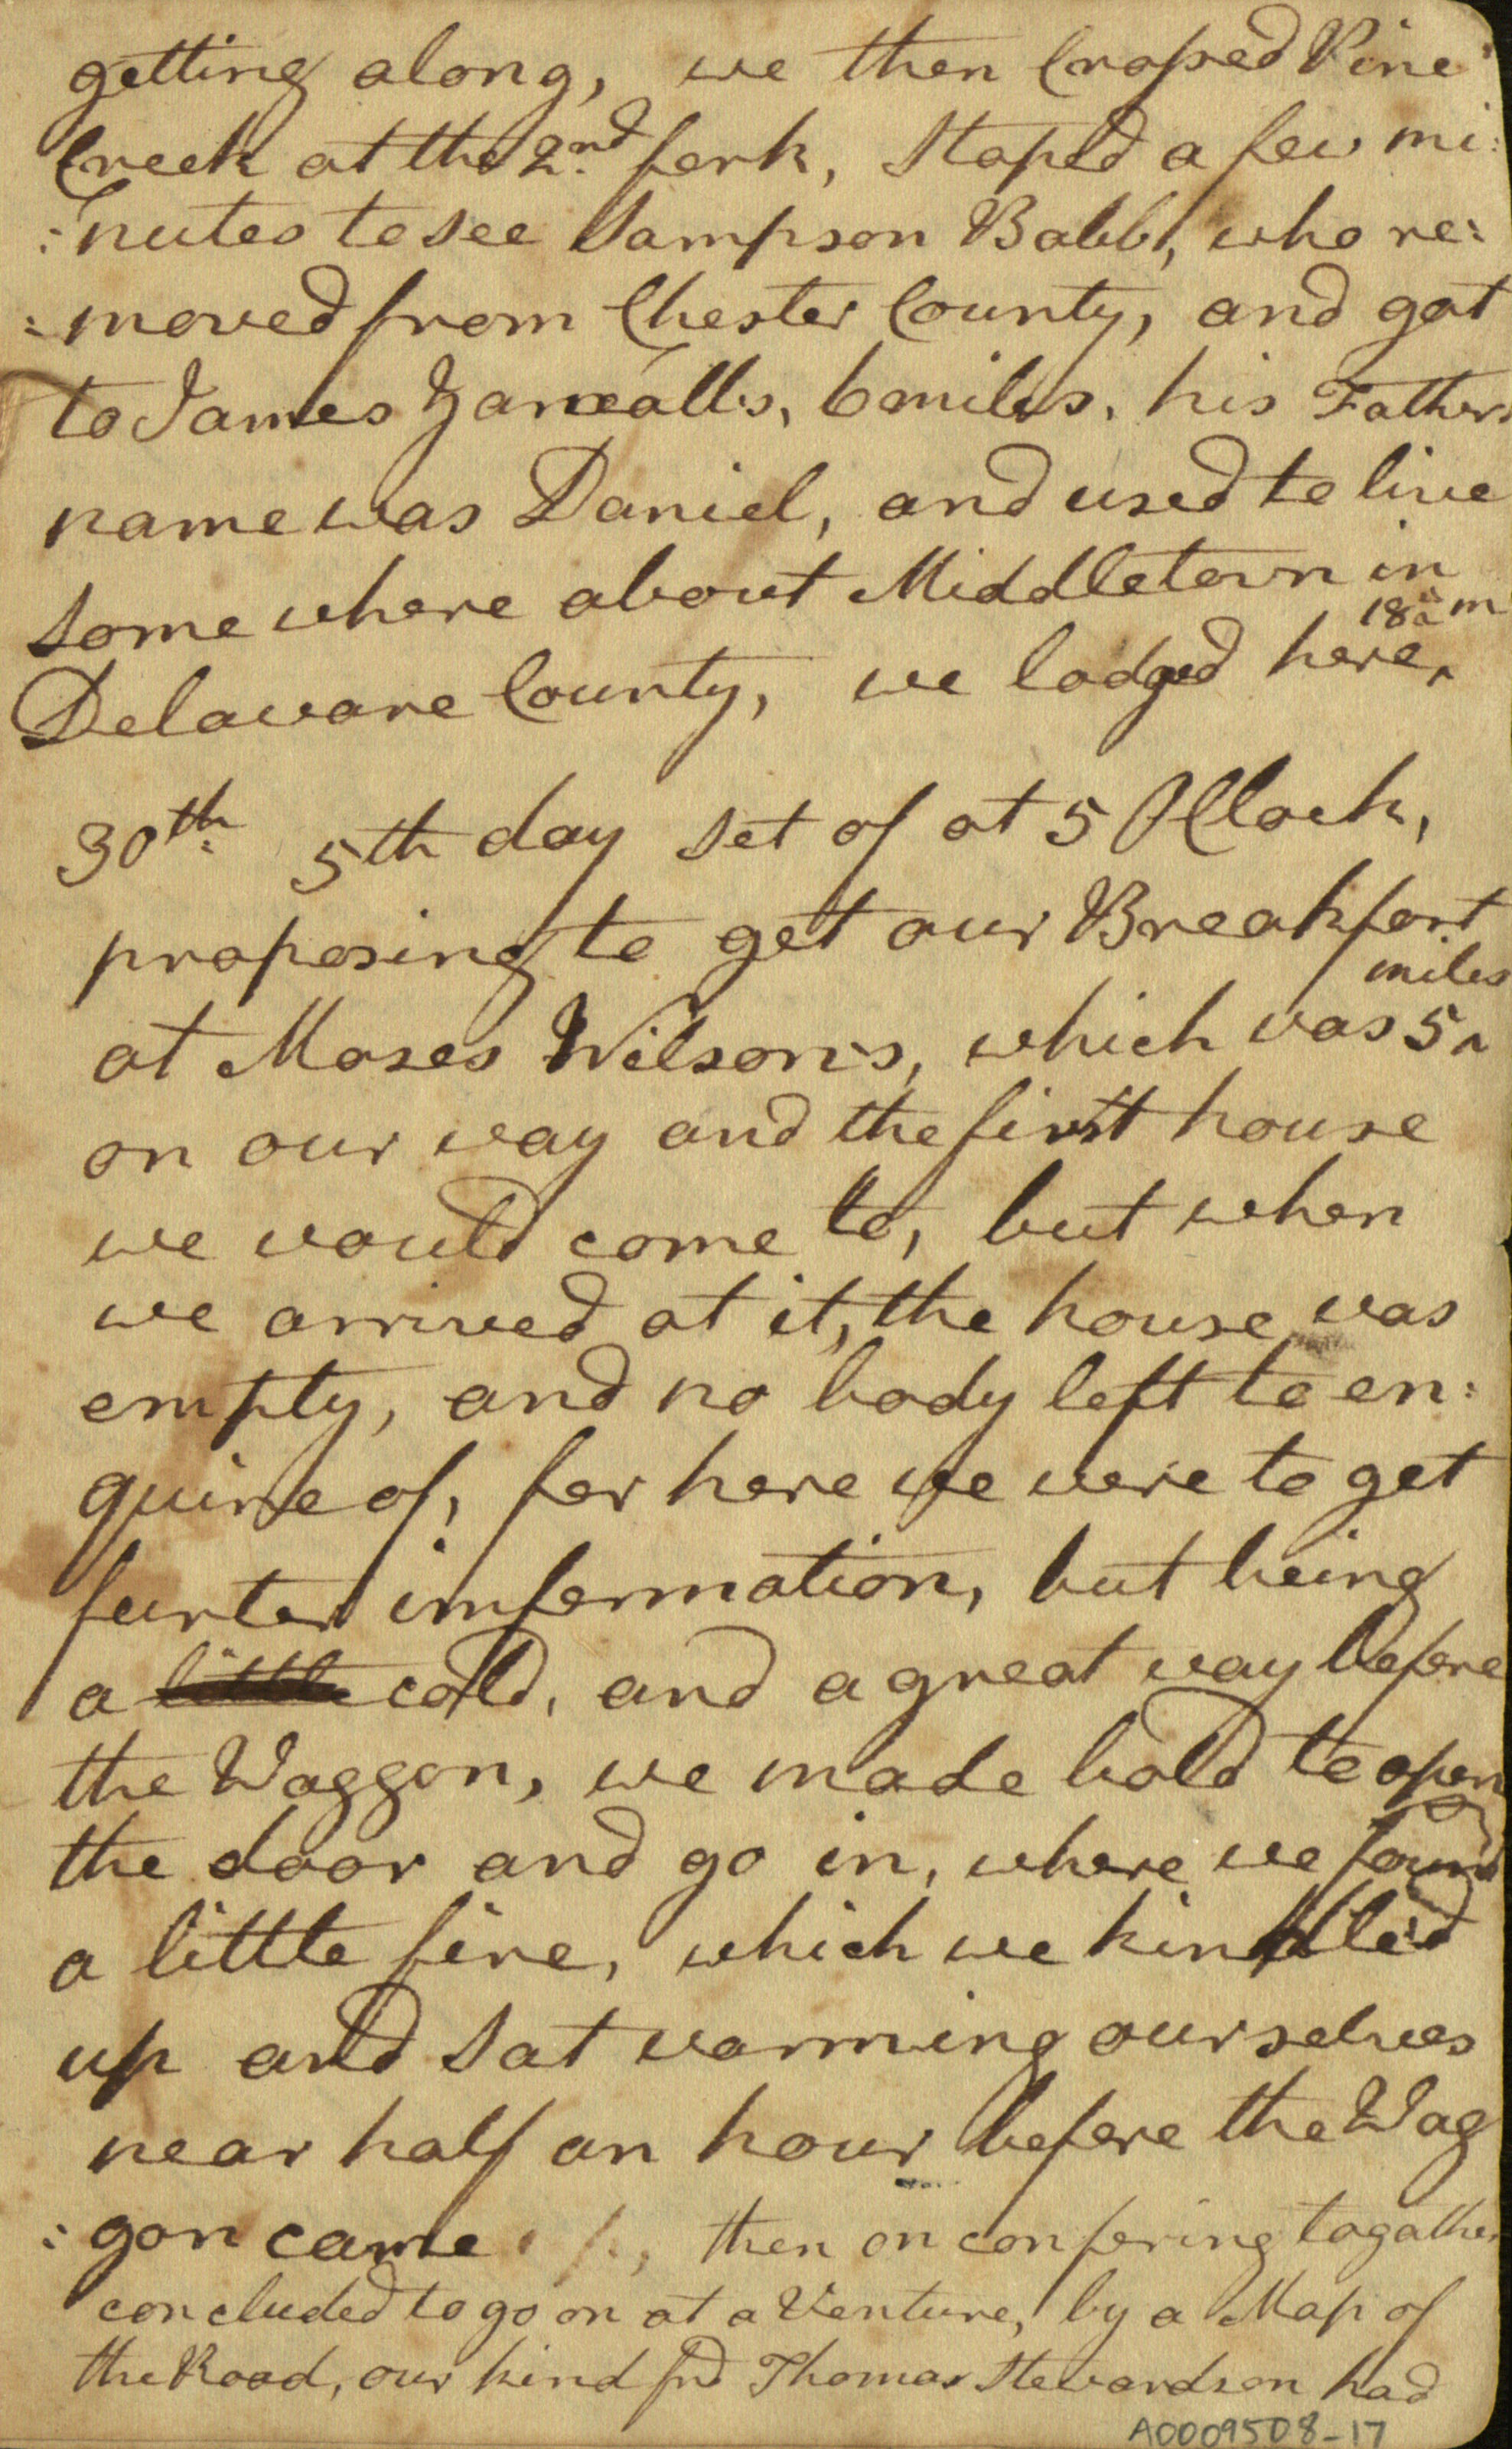 getting along, we then Crossed Pine
Creek at the 2nd. fork, Stop'd a few mi:
:nutes to see Sampson Babb, who re:
:moved from Chester County, and got
to James Yarnealls, 6 miles, his Fathers
name was Daniel, and used to live
some where about Middletown in
Delaware County, we lodged here, ‸ 18 m
30th. 5th day Set of at 5 OClock,
proposing to get our Breakfast
at Moses Wilsons, which was 5 ‸ miles
on our way and the first house
we would come to, but when
we arrived at it, the house was
empty, and no body left to en:
quire of, for here we were to get
furter information, but being
a little cold, and a great way before
the Waggon, we made bold to open
the door and go in, where we found
a little fire, which we kindled
up and Sat warming ourselves
near half an hour before the Wag
:gon came, then on confering togather
concluded to go on at a Venture, by a Map of
the Road, our kind frd Thomas Stewardson had
A0009508-17